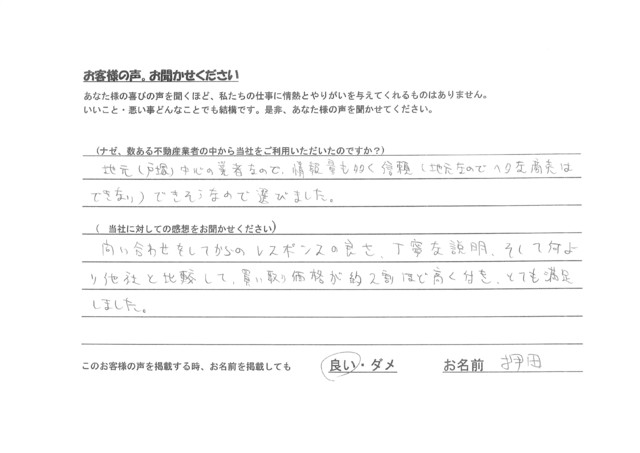 お客様の声。お聞かせください
あなた様の喜びの声を聞くほど、私たちの仕事に情熱とやりがいを与えてくれるものはありません。
いいこと・悪い事どんなことでも結構です。是非、あなた様の声を聞かせてください。
(ナゼ、数ある不動産業者の中から当社をご利用いただいたのですか?)
地元(戸塚)中心の業者なので、情報量も多く信頼(地元なのでヘタな商売は
できない)できそうなので選びました。
( 当社に対しての感想をお聞かせください)
問い合わせをしてからのレスポンスの良さ、丁寧な説明、そして何よ
り他社と比較して、買い取り価格が約2割ほど高く付き、とても満足
しました。
このお客様の声を掲載する時、お名前を掲載しても 良い・ダメ お名前 押田